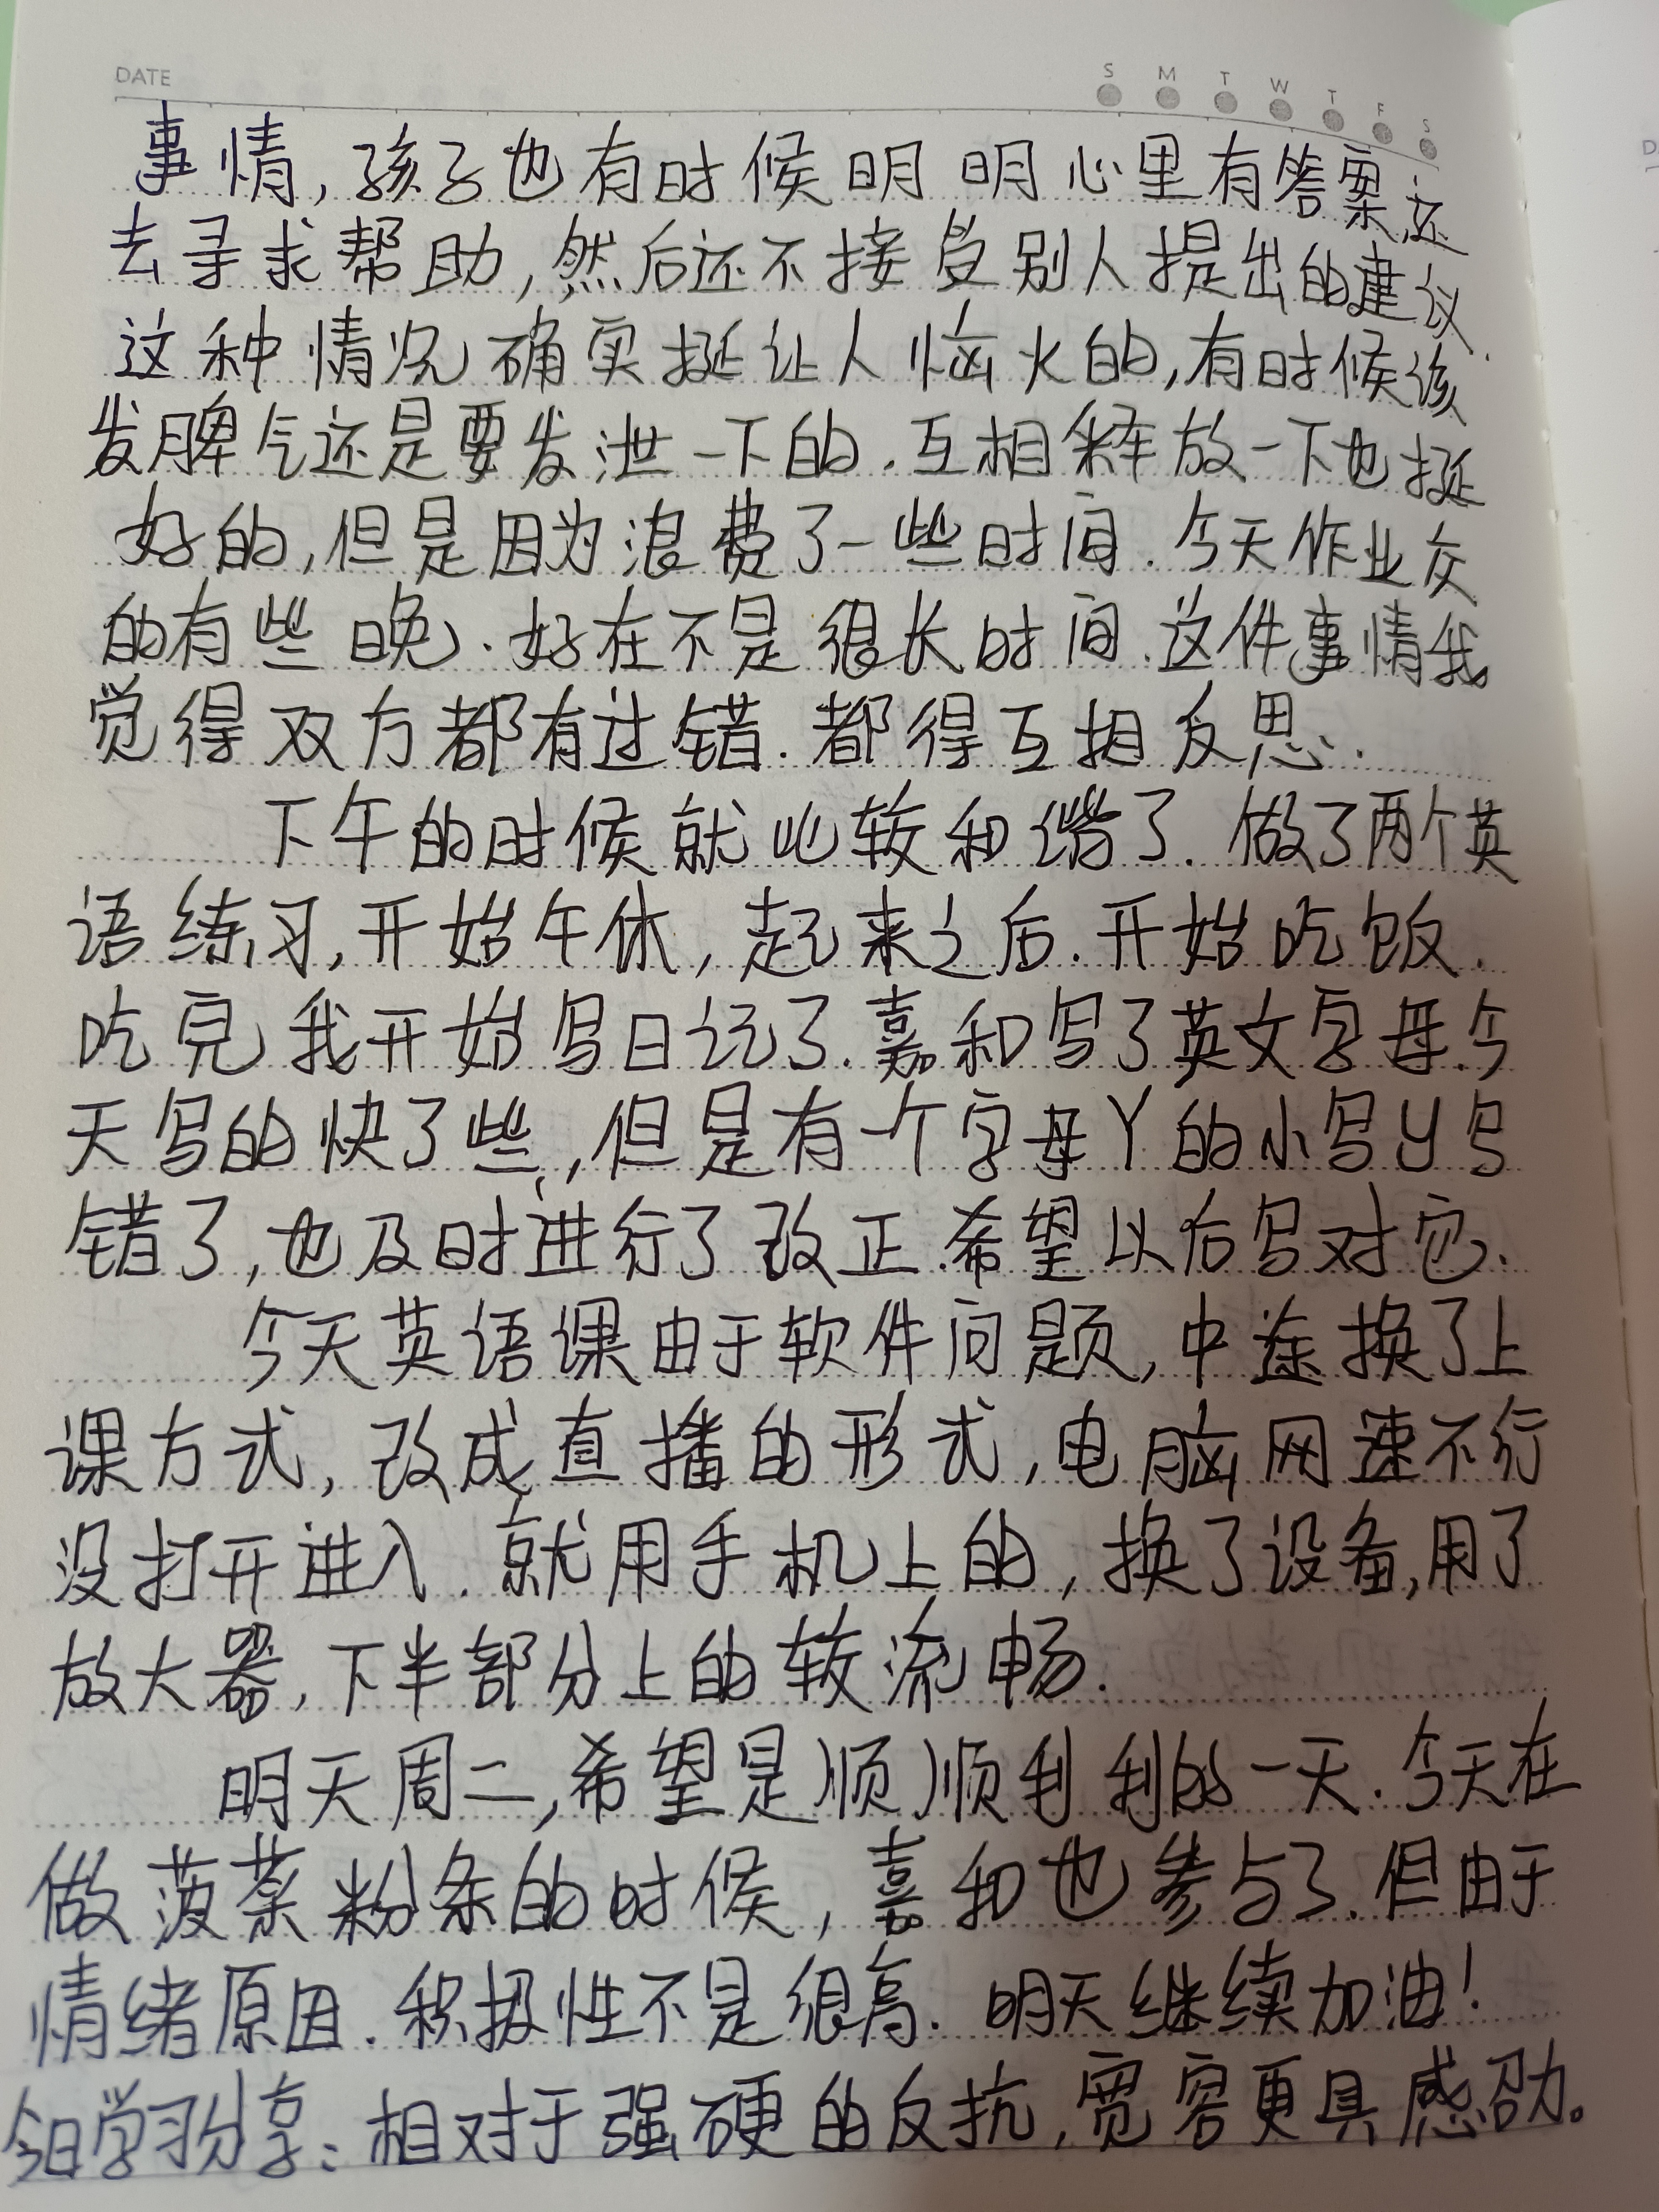 DATE
S M T W T F S
事情,孩子也有时候明明心里有答案,还
去寻求帮助,然后还不接受别人提出的建议.
这种情况确实挺让人恼火的,有时候该
发脾气还是要发泄一下的.互相释放一下也挺
好的,但是因为浪费了一些时间.今天作业交
的有些晚.好在不是很长时间.这件事情我
觉得双方都有过错.都得互相反思.
下午的时候就比较和谐了.做了两个英
语练习,开始午休,起来之后.开始吃饭.
吃完我开始写日记了.嘉和写了英文字母.今
天写的快了些,但是有一个字母Y的小写y写
错了,也及时进行了改正.希望以后写对它.
今天英语课由于软件问题,中途换了上
课方式,改成直播的形式,电脑网速不行
没打开进入.就用手机上的,换了设备,用了
放大器,下半部分上的较流畅.
明天周二,希望是顺顺利利的一天.今天在
做菠菜粉条的时候,嘉和也参与了.但由于
情绪原因.积极性不是很高.明天继续加油!
今日学习分享:相对于强硬的反抗,宽容更具感召力。